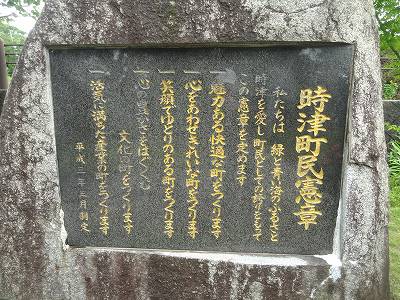 時津町民憲章
私たちは 緑と青い海のふるさと
時津を愛し 町民としての誇りをもって
この憲章を定めます
一 魅力ある快適な町をつくります
一 心をあわせきれいな町をつくります
一 笑顔でゆとりのある町をつくります
一 心の豊かさをはぐくむ
文化の町をつくります
一 活気に満ちた産業の町をつくります
平成三年 月制定